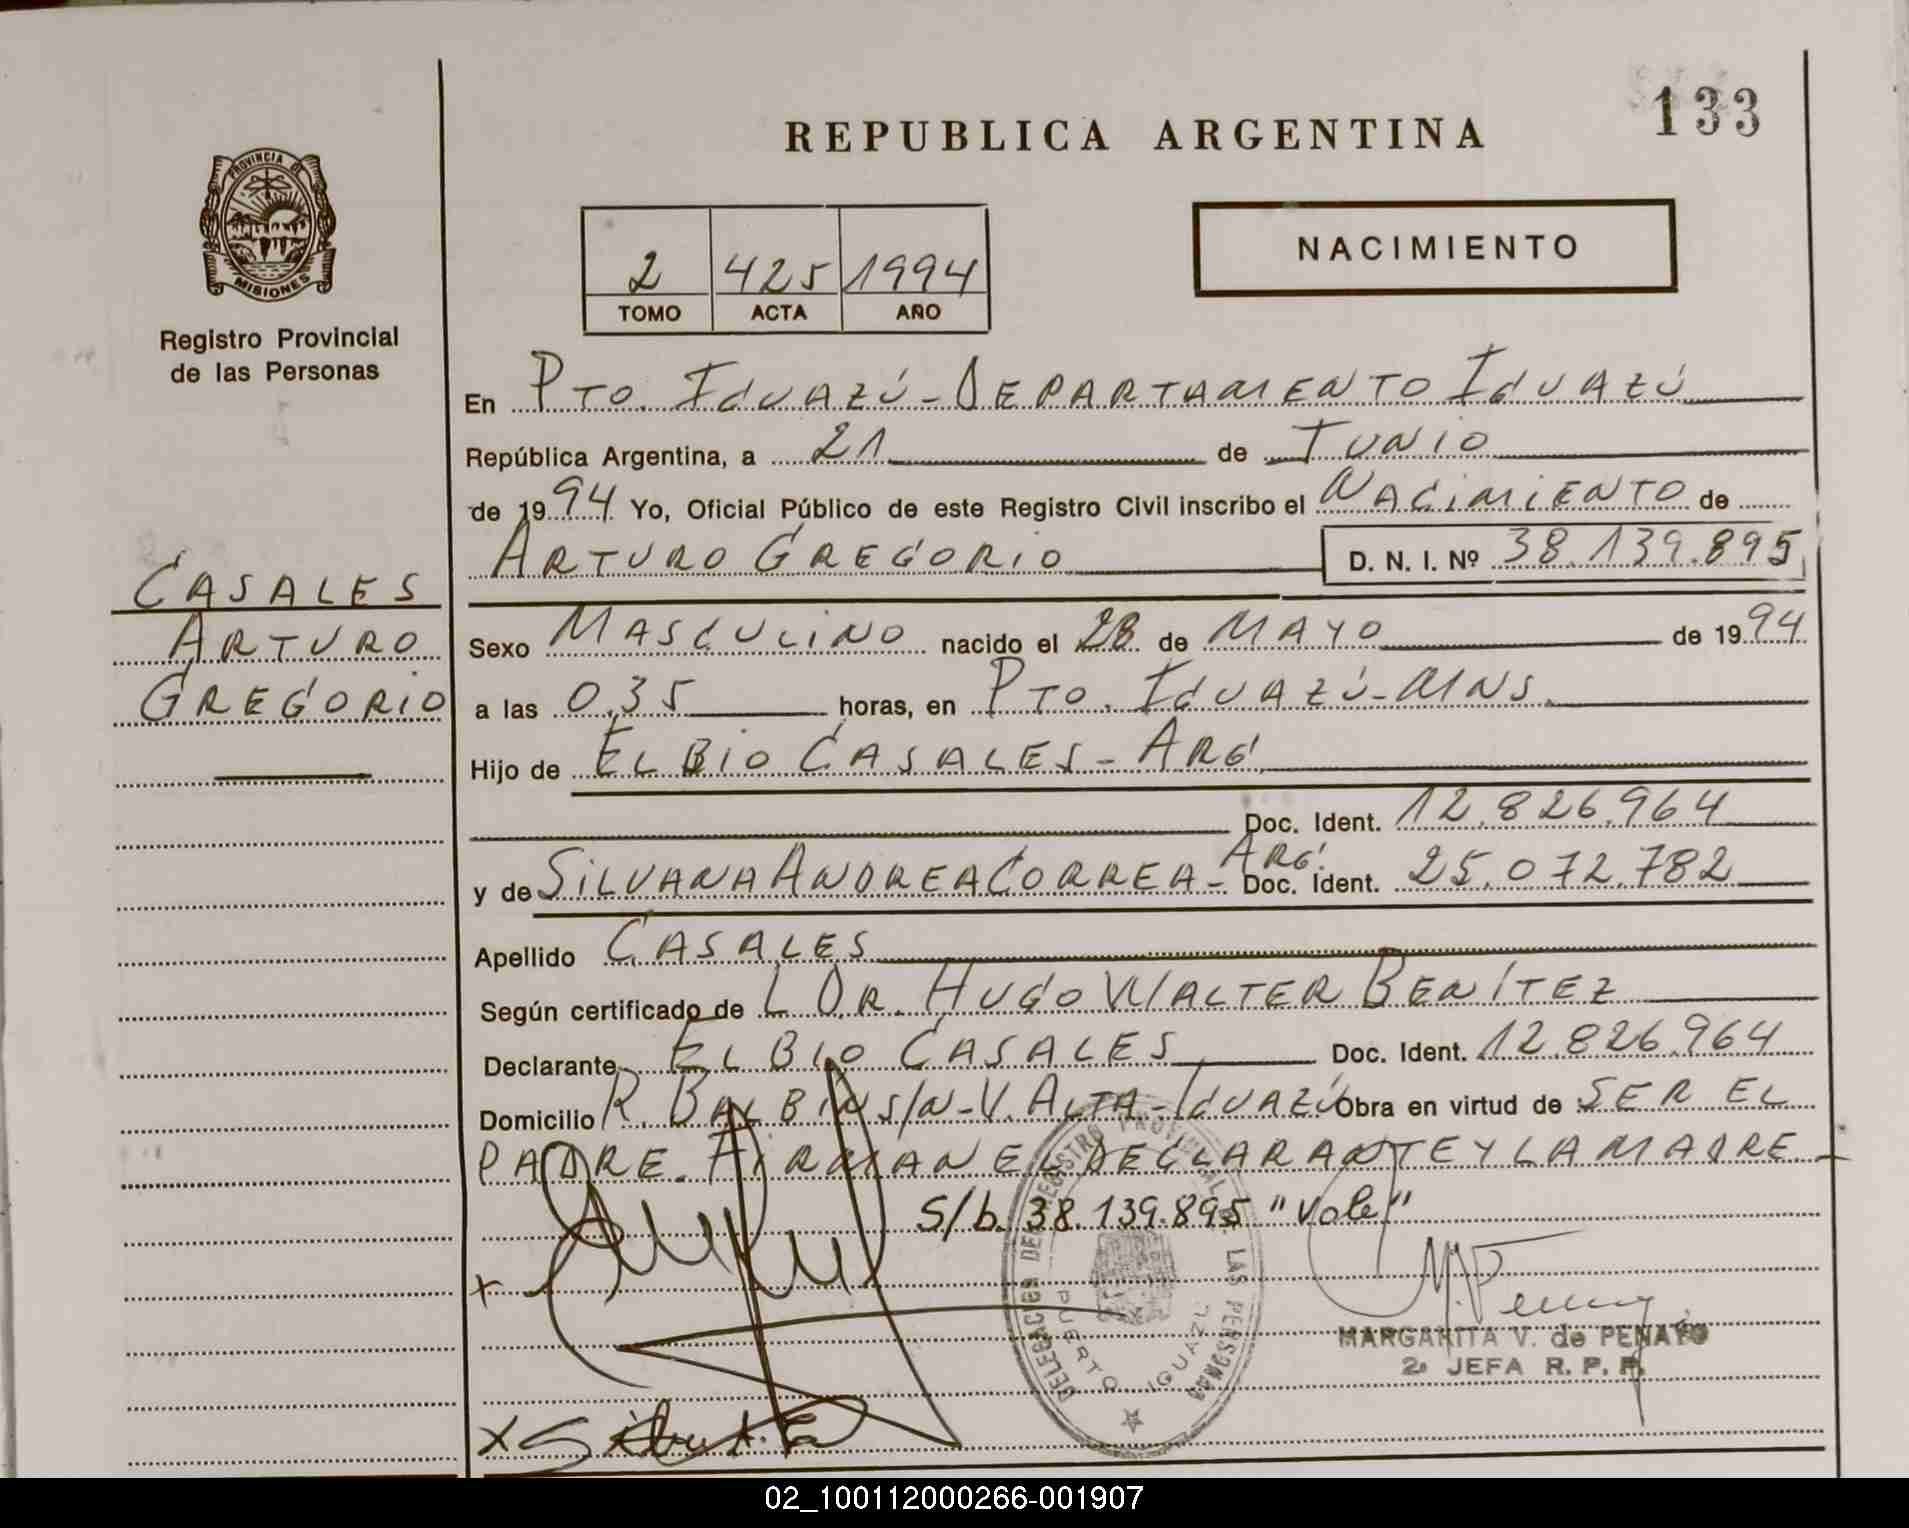 133
REPUBLICA ARGENTINA
PROVINCIA DE
MISIONES
Registro Provincial
de las Personas
2 425 1994
TOMO ACTA AÑO
NACIMIENTO
En PTO. IGUAZÚ - DEPARTAMENTO IGUAZÚ
República Argentina, a 21 de JUNIO
de 1994 Yo, Oficial Público de este Registro Civil inscribo el NACIMIENTO de
ARTURO GREGORIO D. N. I. Nº 38.139.895
CASALES
ARTURO
GREGORIO
Sexo MASCULINO nacido el 28 de MAYO de 1994
a las 0,35 horas, en PTO. IGUAZÚ - MNS.
Hijo de ELBIO CASALES - ARG.
Doc. Ident. 12.826.964
y de SILVANA ANDREA CORREA - ARG. Doc. Ident. 25.072.782
Apellido CASALES
Según certificado de L DR. HUGO WALTER BENÍTEZ
Declarante ELBIO CASALES Doc. Ident. 12.826.964
Domicilio R. BALBIN S/N - V. ALTA - IGUAZÚ Obra en virtud de SER EL
PADRE. FIRMAN EL DECLARANTE Y LA MADRE
S/b. 38.139.895 "Vale"
x
DELEGACION DEL REGISTRO PROVINCIAL DE LAS PERSONAS
PUERTO IGUAZU
MARGARITA V. de PENAYO
2ª JEFA R. P. P.
x
02_100112000266-001907